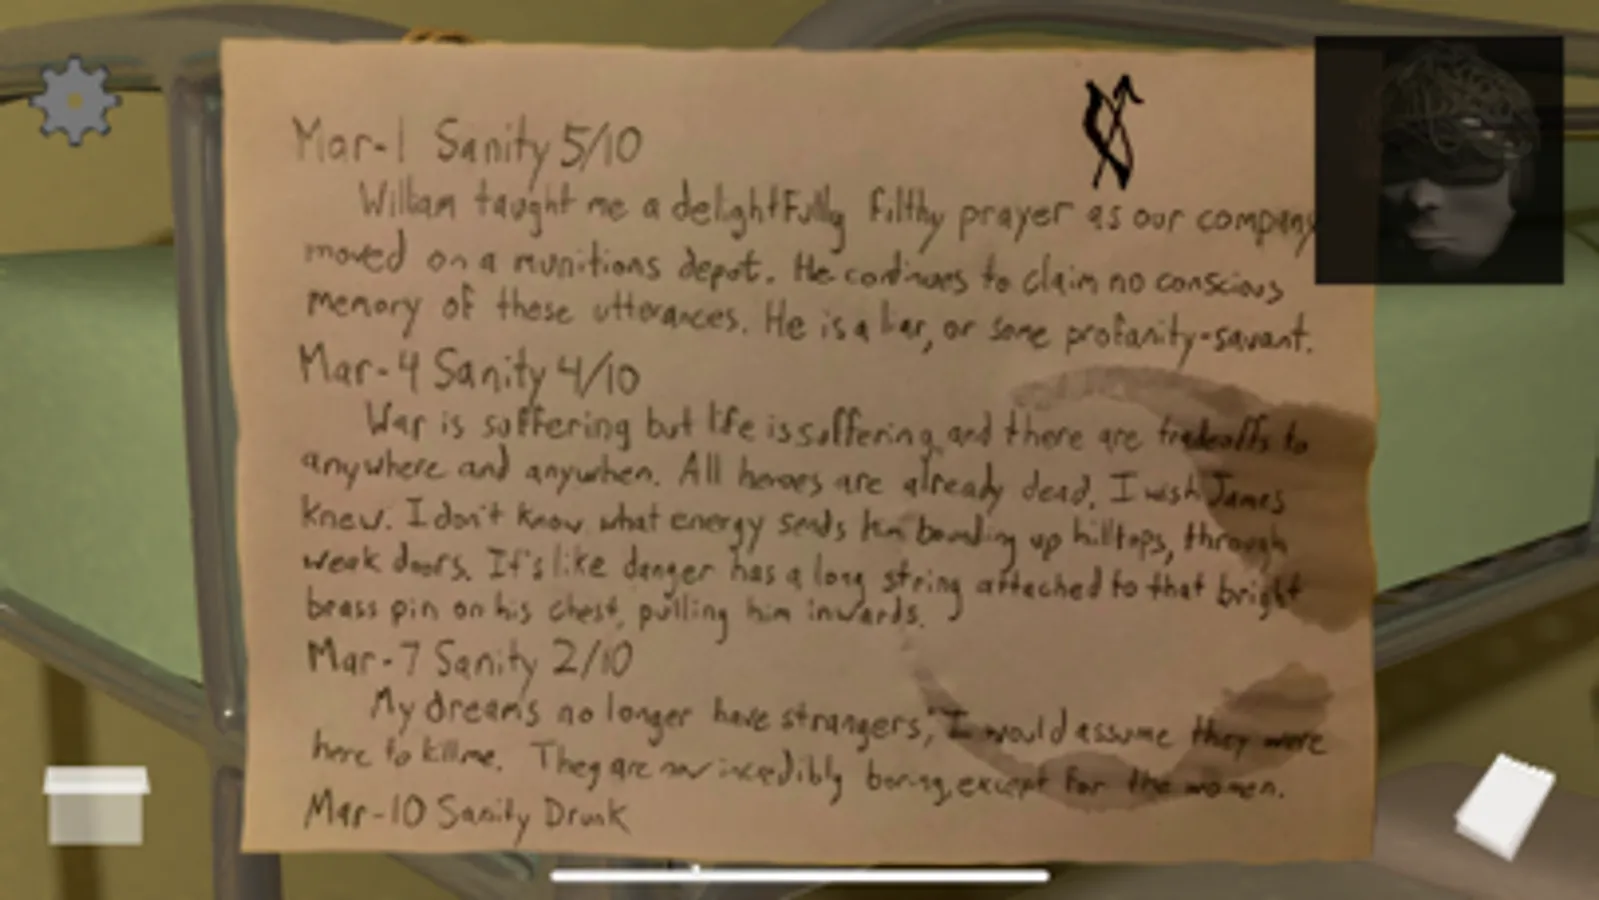 Mar-1 Sanity 5/10
William taught me a delightfully filthy prayer as our company
moved on a munitions depot. He continues to claim no conscious
memory of these utterances. He is a liar, or some profanity-savant.
Mar-4 Sanity 4/10
War is suffering but life is suffering, and there are tradeoffs to
anywhere and anywhen. All heroes are already dead. I wish James
knew. I don't know what energy sends him bounding up hilltops, through
weak doors. It's like danger has a long string attached to that bright
brass pin on his chest, pulling him inwards.
Mar-7 Sanity 2/10
My dreams no longer have strangers, I would assume they were
here to kill me. They are now incredibly boring, except for the women.
Mar-10 Sanity Drunk